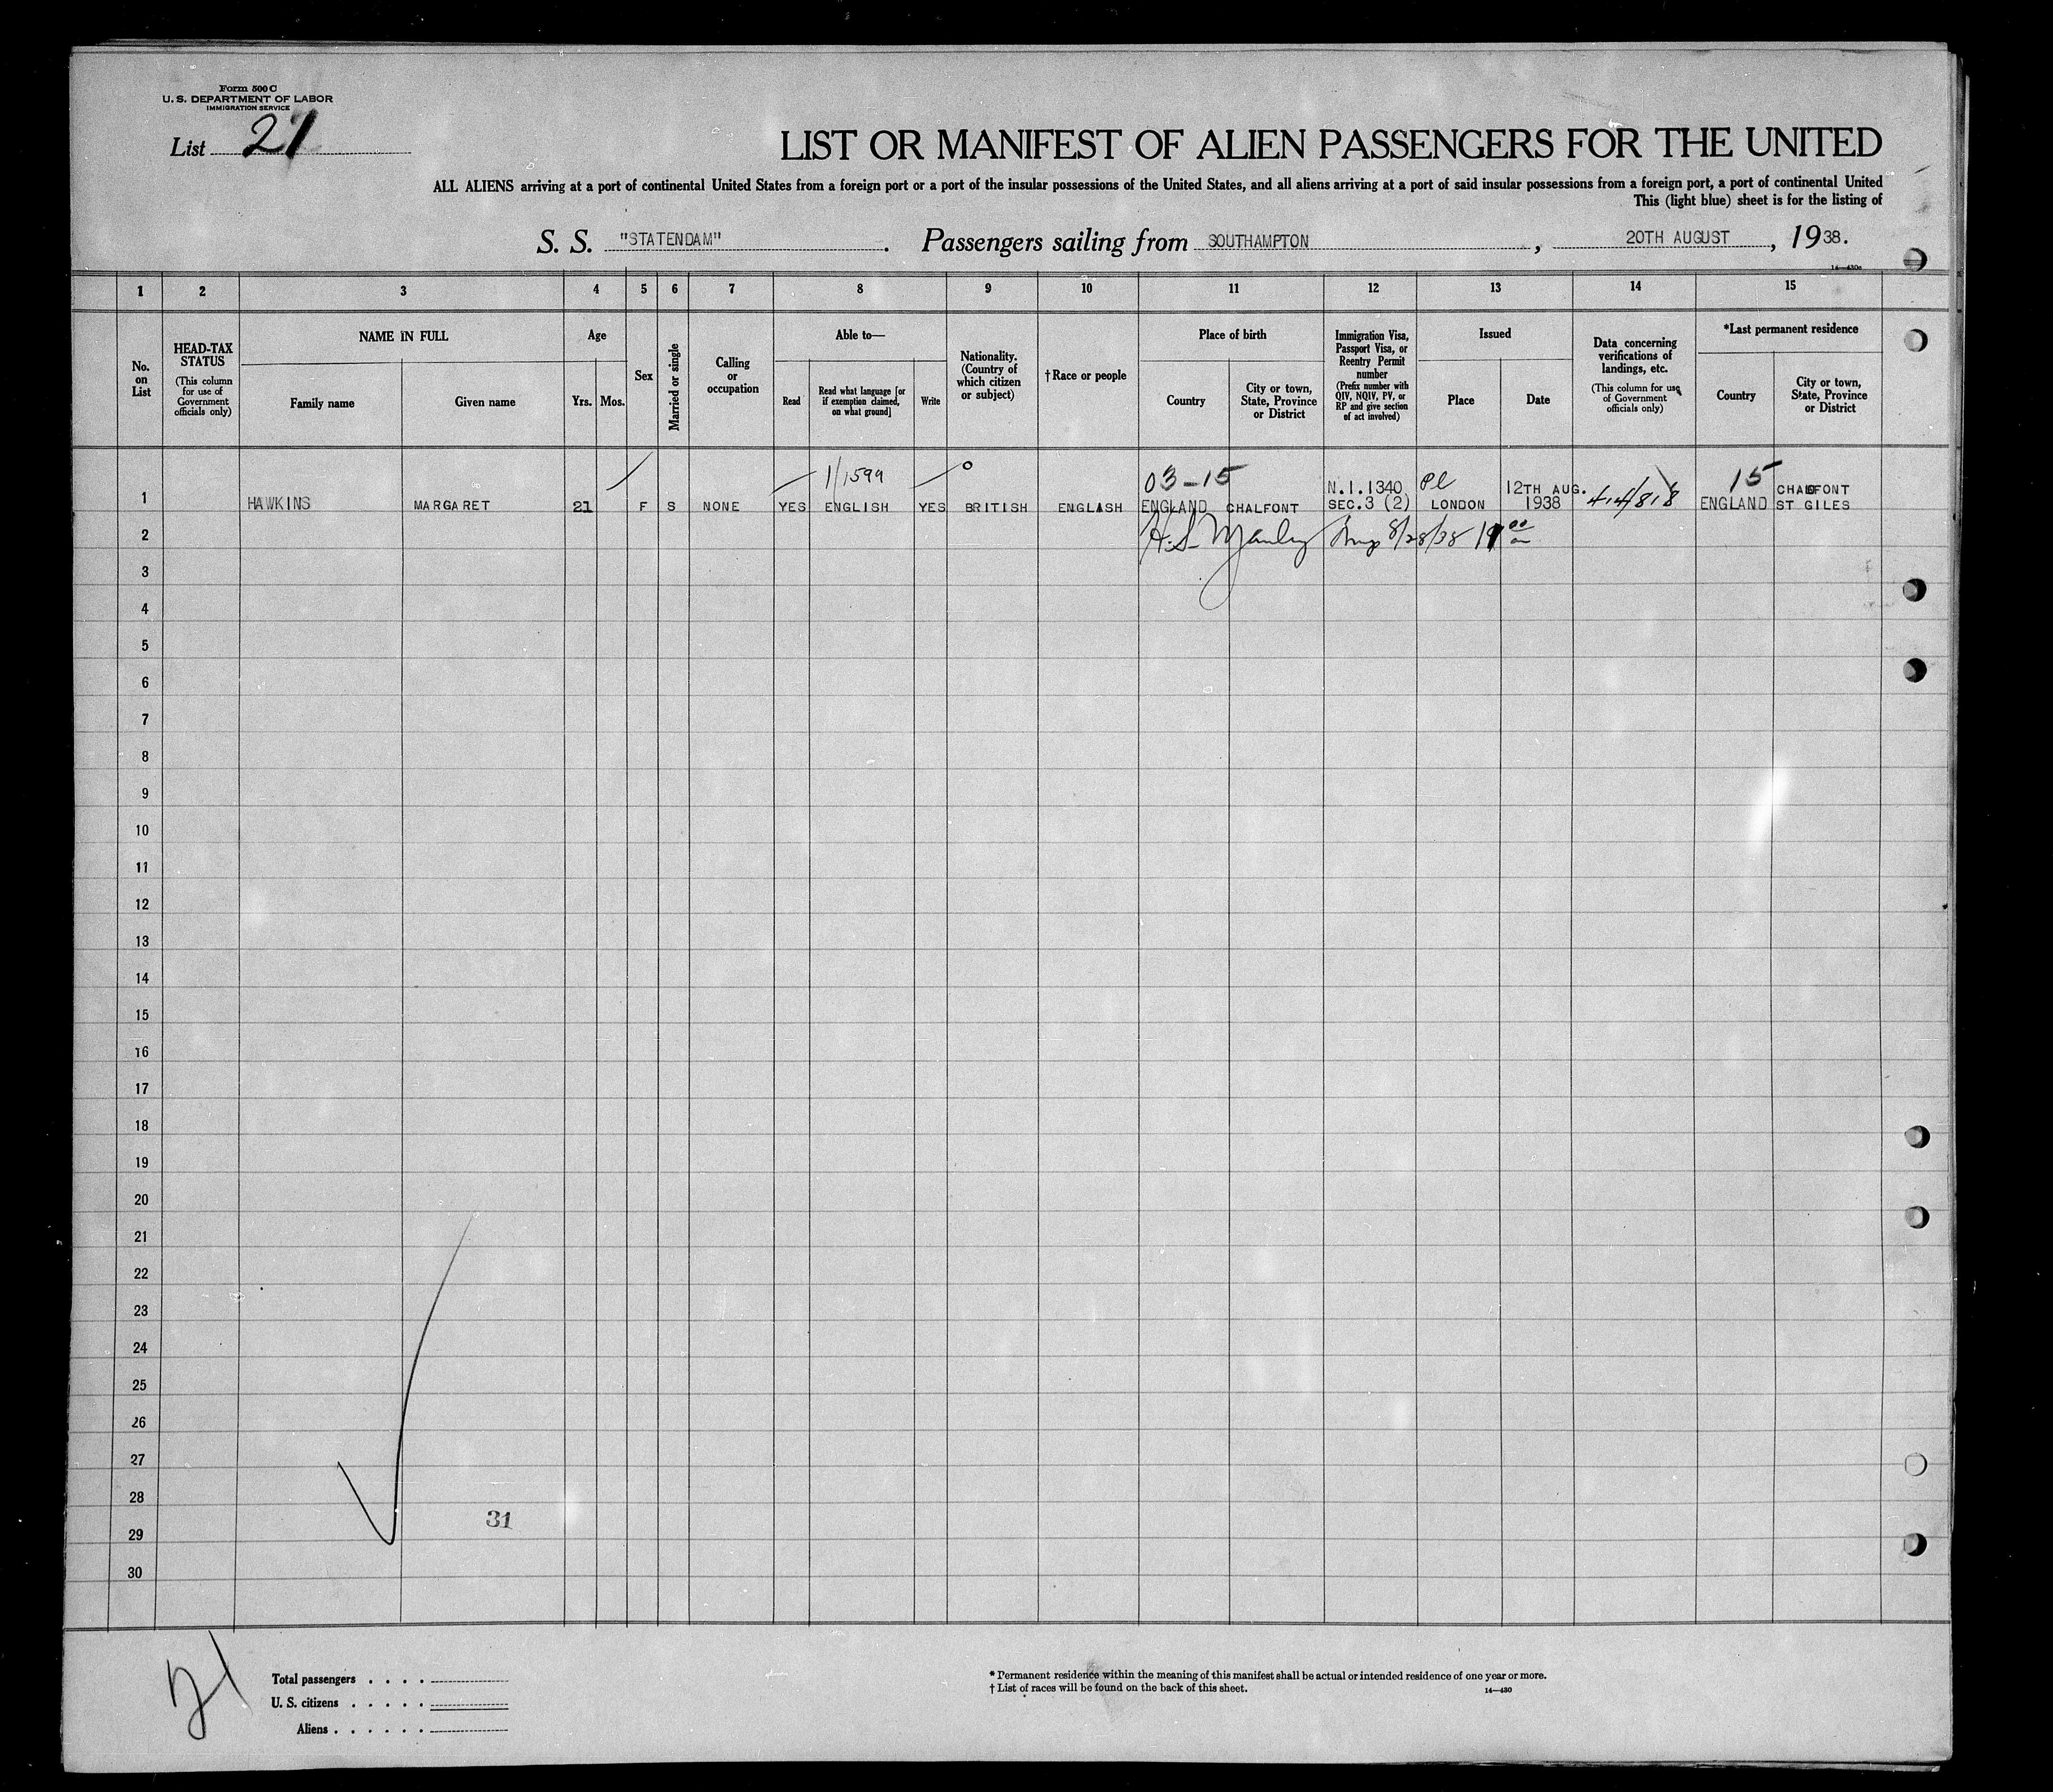 Form 500 C
U. S. DEPARTMENT OF LABOR
IMMIGRATION SERVICE
List 21
LIST OR MANIFEST OF ALIEN PASSENGERS FOR THE UNITED
ALL ALIENS arriving at a port of continental United States from a foreign port or a port of the insular possessions of the United States, and all aliens arriving at a port of said insular possessions from a foreign port, a port of continental United
This (light blue) sheet is for the listing of
S. S. "STATENDAM". Passengers sailing from SOUTHAMPTON, 20TH AUGUST, 1938.
1 2 3 4 5 6 7 8 9 10 11 12 13 14 15
No. on List
HEAD-TAX STATUS
(This column for use of Government officials only)
NAME IN FULL
Family name
Given name
Age
Yrs. Mos.
Sex
Married or single
Calling or occupation
Able to—
Read
Read what language [or if exemption claimed, on what ground]
Write
Nationality. (Country of which citizen or subject)
†Race or people
Place of birth
Country
City or town, State, Province or District
Immigration Visa, Passport Visa, or Reentry Permit number
(Prefix number with QIV, NQIV, PV, or RP and give section of act involved)
Issued
Place
Date
Data concerning verifications of landings, etc.
(This column for use of Government officials only)
*Last permanent residence
Country
City or town, State, Province or District
1/1599 03-15 N.I.1340 Pl 12TH AUG. 15 CHALFONT
1 HAWKINS MARGARET 21 F S NONE YES ENGLISH YES BRITISH ENGLISH ENGLAND CHALFONT SEC.3 (2) LONDON 1938 ENGLAND ST GILES
2 H.S. Manley Insp 8/28/38
3
4
5
6
7
8
9
10
11
12
13
14
15
16
17
18
19
20
21
22
23
24
25
26
27
28
31
29
30
21
Total passengers . . . .
U. S. citizens . . . . .
Aliens . . . . . .
* Permanent residence within the meaning of this manifest shall be actual or intended residence of one year or more.
† List of races will be found on the back of this sheet.
14—430